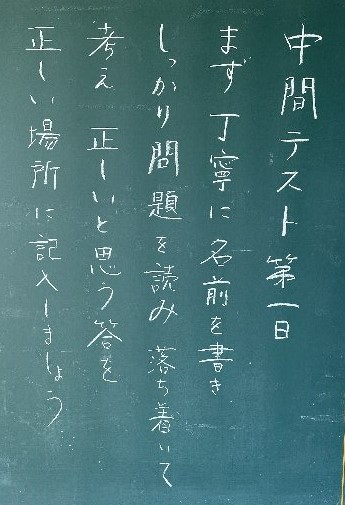 中間テスト第一日
まず丁寧に名前を書き
しっかり問題を読み 落ち着いて
考え 正しいと思う答を
正しい場所に記入しましょう